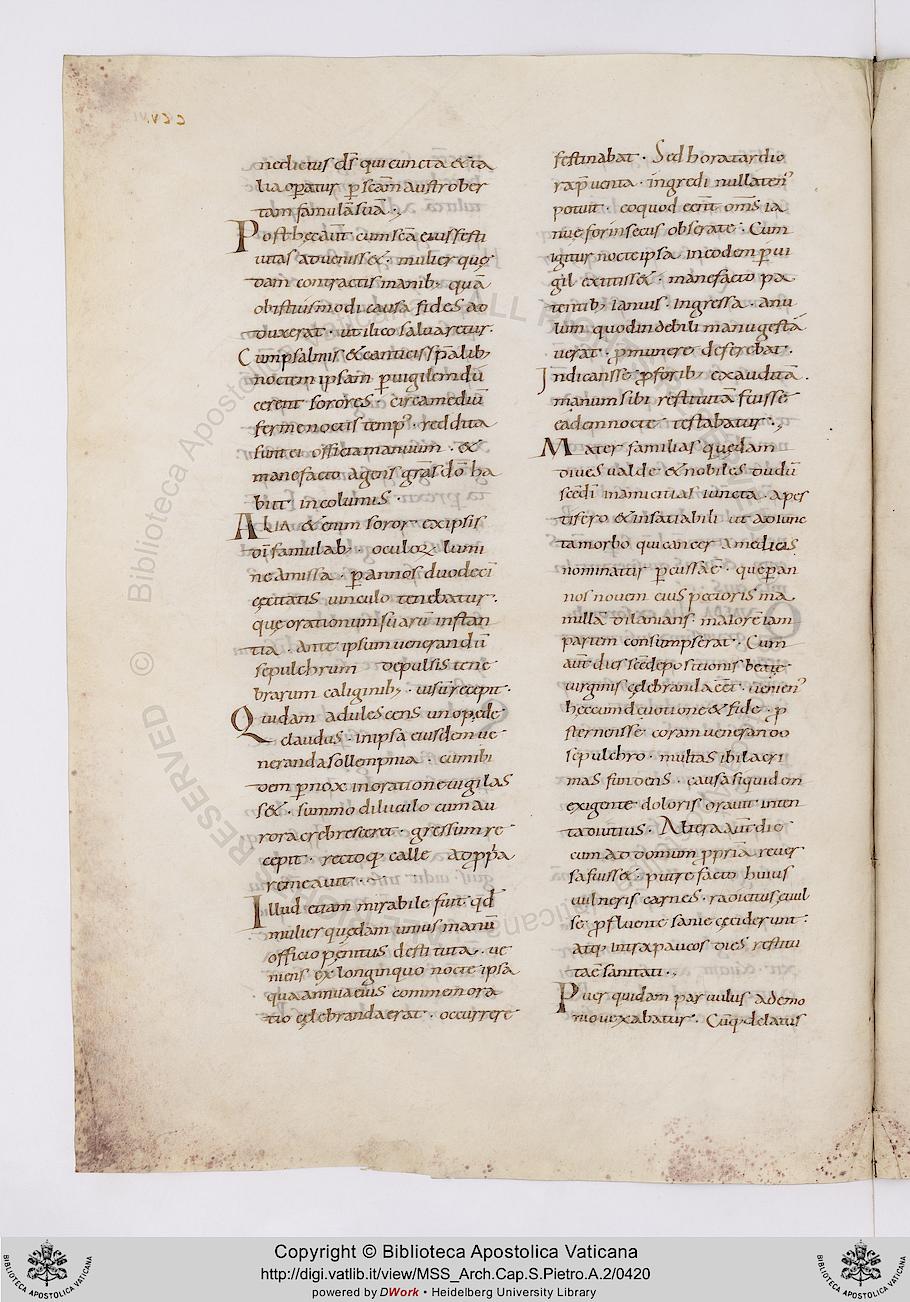 nedictus ds̄ qui cuncta & ta
lia op̄atur p̄ sc̄am austrober
tam famulā suā .,
Post hęc aūt cum sc̄a eius festi
uitas aduenisset · mulier quę
dam contractis manib; quā
obistiusmodi causā fides ad
duxerat · ut ilico saluaretur.
Cum psalmis & canticis sp̄alib;
noctem ipsam p̄uigilem dū
cerent sorores · circa mediū
ferme noctis temp' · reddita
sunt ei officia manuum · &
mane facto agens gr̄as dō ha
buit incolumis ·
Alia & enim soror ex ipsis
dī famulab; · oculoꝝ lumi
ne amissa · p̄ annos duodeci
cęcitatis uinculo tenebatur.
quę orationum suarū instan
tia · ante ipsum uenerandū
sepulchrum depulsis tene
brarum caliginib; · uisū recepit ·
Quidam adulescens uno pede
claudus · in ipsa eiusdem ue
neranda sollempnia · cum ibi
dem p̄nox in oratione uigilas
s& · summo diluculo cum au
rora crebresceret · gressum re
cepit · rectoq; calle ad pp̄a
remeauit ·
Illud etiam mirabile fuit qd̄
mulier quędam unius manū
officio penitus destituta · ue
niens ex longinquo nocte ipsa
qua annua eius commemora
tio cęlebranda erat · occurrere
festinabat · Sed hora tardio
ra p̄uenta · ingredi nullaten'
potuit · eo quod eēnt om̄s ia
nuę forinsecus obserate · Cum
igitur nocte ipsa in eodem p̄ui
gil extitiss& · mane facto pa
tentib; ianuis · ingressa · anu
lum quod in debili manu gestā
uerat · p̄ munere deferebat ·
Indicansse p̄ forib; exauditā .
manum sibi restitutā fuisse
eadem nocte testabatur .,
Mater familias quędam
diues ualde & nobiles dudū
sc̄e dī in amicitias iuncta · apes
tifero & insatiabili ut adiunc
ta morbo qui cancer a medicis
nominatur p̄cussa ē · que p̄ an
nos nouem eius pectoris ma
millā dilanians · maiorē iam
partem consumpserat · Cum
aūt dies sc̄e depositionis beatę
uirginis cęlebranda eēt · uenien'
hęc cum deuotione & fide · p̄
sternensse coram uenerando
sepulchro · multas ibi lacri
mas fundens · causa siquidem
exigente doloris orauit inten
ta diutius · Altera aūt die
cum ad domum pp̄riā reuer
sa fuiss& · putrefacto huius
uulneris carnes · radicitus euul
se p̄fluente sanie ceciderunt ·
atq; infra paucos dies restitu
ta ē sanitati .,
Puer quidam paruulus a demo
nio uexabatur · Cūq; delatus
© Biblioteca Apostolica Vaticana
ALL RIGHTS RESERVED
Copyright © Biblioteca Apostolica Vaticana
http://digi.vatlib.it/view/MSS_Arch.Cap.S.Pietro.A.2/0420
powered by DWork • Heidelberg University Library
BIBLIOTECA APOSTOLICA VATICANA
BIBLIOTECA APOSTOLICA VATICANA